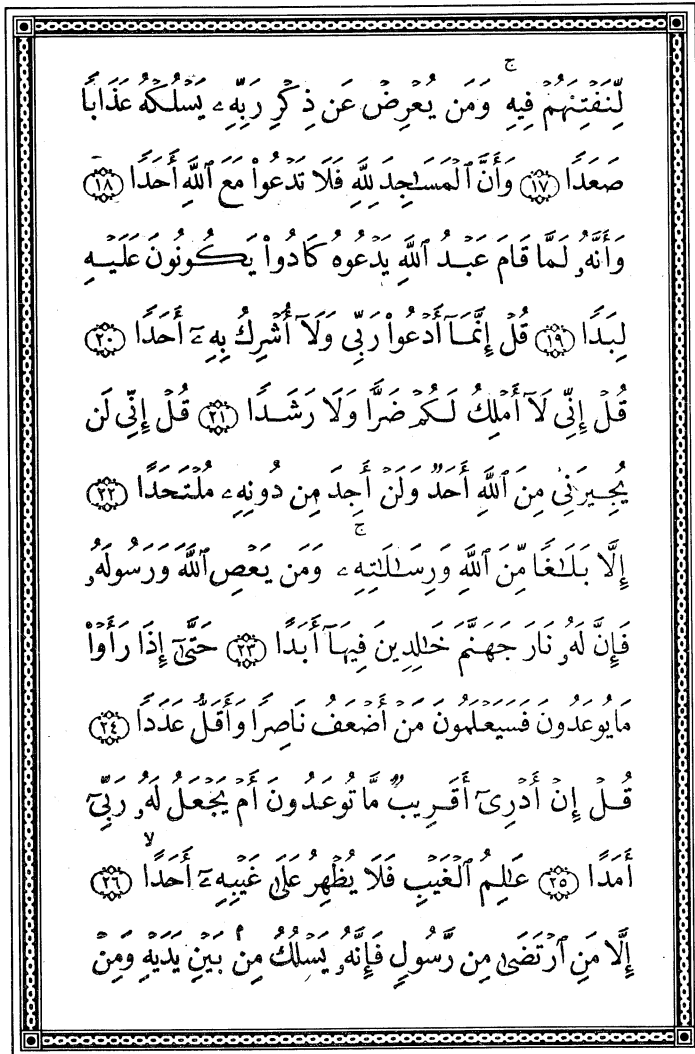 لِّنَفْتِنَهُمْ فِيهِ ۚ وَمَن يُعْرِضْ عَن ذِكْرِ رَبِّهِۦ يَسْلُكْهُ عَذَابًا
صَعَدًا ﴿١٧﴾ وَأَنَّ ٱلْمَسَـٰجِدَ لِلَّهِ فَلَا تَدْعُوا۟ مَعَ ٱللَّهِ أَحَدًا ﴿١٨﴾
وَأَنَّهُۥ لَمَّا قَامَ عَبْدُ ٱللَّهِ يَدْعُوهُ كَادُوا۟ يَكُونُونَ عَلَيْهِ
لِبَدًا ﴿١٩﴾ قُلْ إِنَّمَآ أَدْعُوا۟ رَبِّى وَلَآ أُشْرِكُ بِهِۦٓ أَحَدًا ﴿٢٠﴾
قُلْ إِنِّى لَآ أَمْلِكُ لَكُمْ ضَرًّا وَلَا رَشَدًا ﴿٢١﴾ قُلْ إِنِّى لَن
يُجِيرَنِى مِنَ ٱللَّهِ أَحَدٌ وَلَنْ أَجِدَ مِن دُونِهِۦ مُلْتَحَدًا ﴿٢٢﴾
إِلَّا بَلَـٰغًا مِّنَ ٱللَّهِ وَرِسَـٰلَـٰتِهِۦ ۚ وَمَن يَعْصِ ٱللَّهَ وَرَسُولَهُۥ
فَإِنَّ لَهُۥ نَارَ جَهَنَّمَ خَـٰلِدِينَ فِيهَآ أَبَدًا ﴿٢٣﴾ حَتَّىٰٓ إِذَا رَأَوْا۟
مَا يُوعَدُونَ فَسَيَعْلَمُونَ مَنْ أَضْعَفُ نَاصِرًا وَأَقَلُّ عَدَدًا ﴿٢٤﴾
قُلْ إِنْ أَدْرِىٓ أَقَرِيبٌ مَّا تُوعَدُونَ أَمْ يَجْعَلُ لَهُۥ رَبِّىٓ
أَمَدًا ﴿٢٥﴾ عَـٰلِمُ ٱلْغَيْبِ فَلَا يُظْهِرُ عَلَىٰ غَيْبِهِۦٓ أَحَدًا ۙ ﴿٢٦﴾
إِلَّا مَنِ ٱرْتَضَىٰ مِن رَّسُولٍ فَإِنَّهُۥ يَسْلُكُ مِنۢ بَيْنِ يَدَيْهِ وَمِنْ